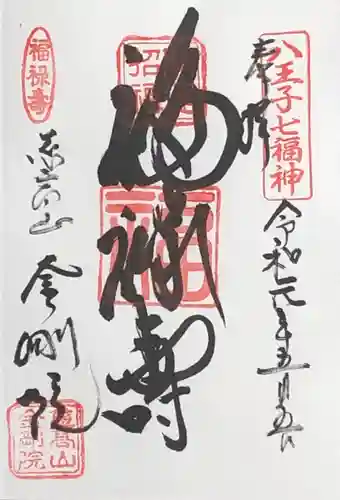 八王子七福神
奉拝
令和元年五月五日
福禄寿
福禄壽
慈高山
金剛院
慈高山
金剛院